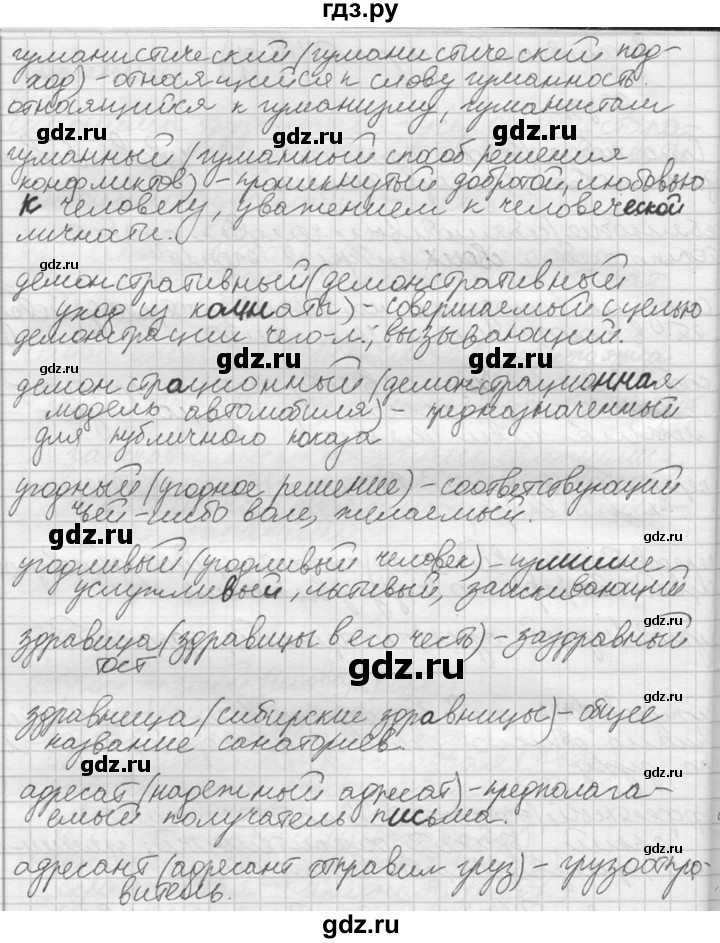 гдз.ру
гуманистический (гуманистический под-
ход) – относящийся к слову гуманность.
относящийся к гуманизму, гуманистам
гуманный (гуманный способ решения
конфликтов) – проникнутый добротой, любовью
к человеку, уважением к человеческой
личности.
демонстративный (демонстративный
уход из комнаты) – совершаемый с целью
демонстрации чего-л.; вызывающий.
демонстрационный (демонстрационная
модель автомобиля) – предназначенный
для публичного показа
угодный (угодное решение) – соответствующий
чьей-либо воле, желаемый.
угодливый (угодливый человек) – излишне
услужливый, льстивый, заискивающий
здравица (здравицы в его честь) – заздравный
тост
здравница (сибирские здравницы) – общее
название санаториев.
адресат (надежный адресат) – предполага-
емый получатель письма.
адресант (адресант отправил груз) – грузоотпра-
витель.
gdz.ru